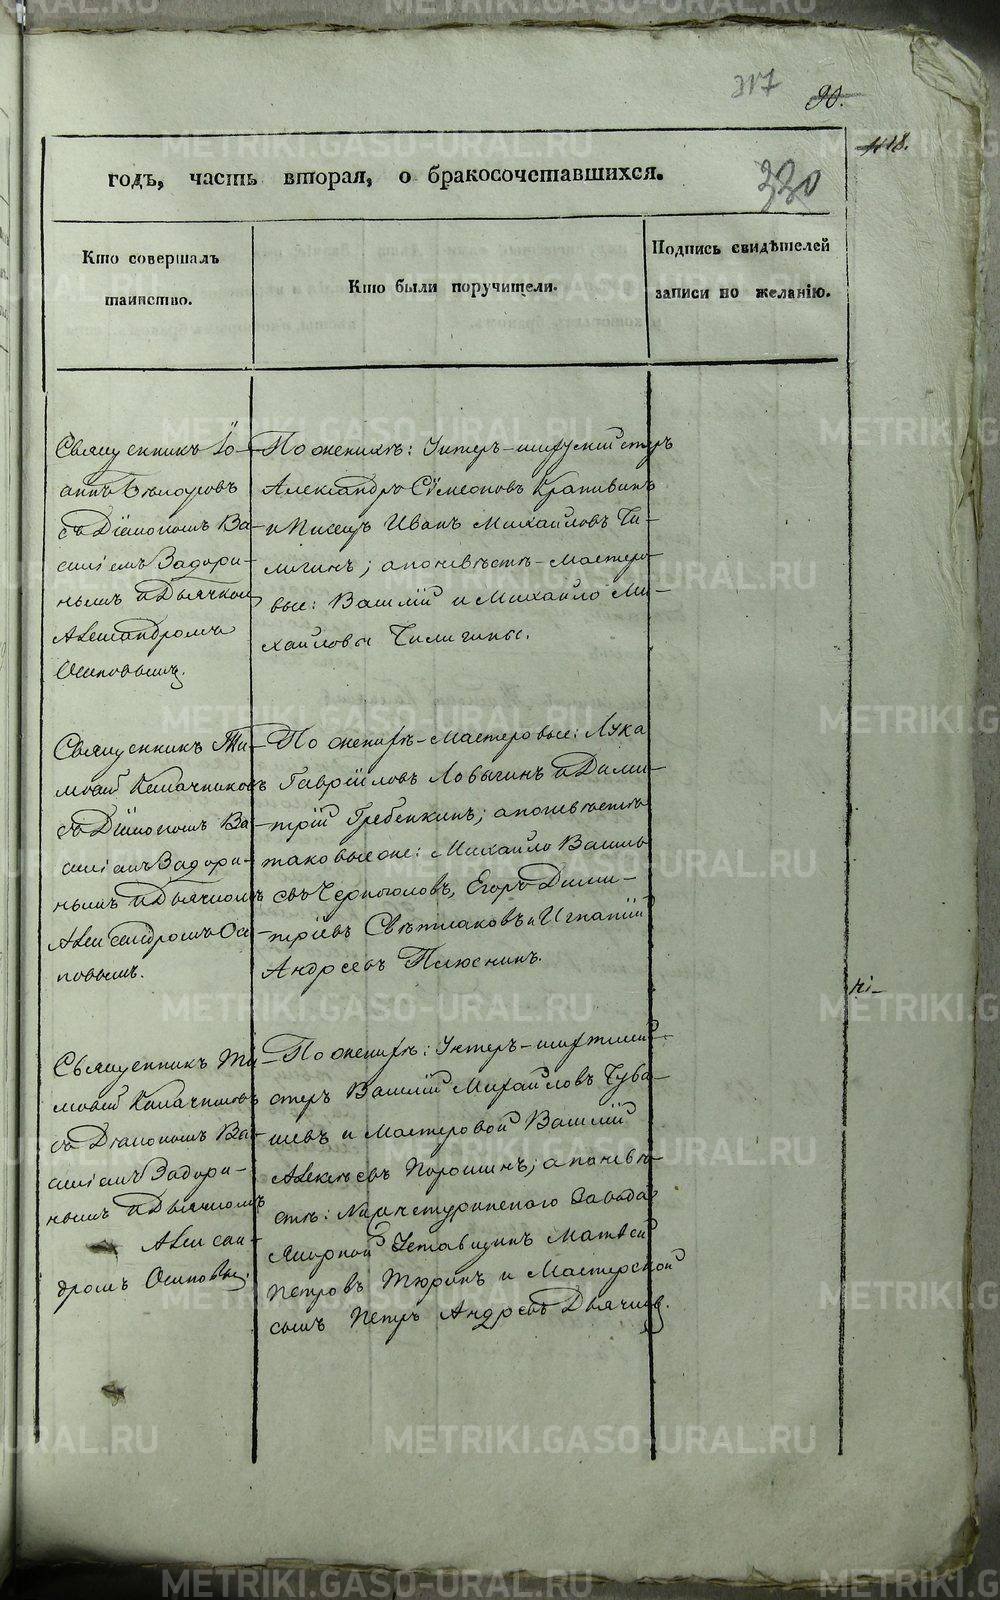 317
90.
118.
годъ, часть вторая, о бракосочетавшихся.
330
Кто совершалъ
таинство.
Кто были поручители.
Подпись свидѣтелей
записи по желанію.
Священникъ Іо-
аннъ
съ Діакономъ Ва-
силіемъ Задори-
нымъ и Дьячкомъ
Александромъ
Осиповымъ.
По женихѣ: Унтеръ-шихтмейстеръ
Александръ Сѵмеоновъ Крапивинъ
и Писецъ Иванъ Михайловъ Чи-
лигинъ; а по невѣстѣ - Мастеро-
вые: Василій и Михайло Ми-
хайловы Чилигины.
Священникъ Ти-
моѳей Калачниковъ
съ Діакономъ Ва-
силіемъ Задори-
нымъ и Дьячкомъ
Александромъ Оси-
повымъ.
По женихѣ - Мастеровые: Лука
Гавріиловъ Ловыгинъ и Дими-
трій Гребенкинъ; а по невѣстѣ
таковые же: Михайло Василь-
евъ Черноголовъ, Егоръ Дими-
тріевъ Свѣтлаковъ и Игнатій
Андреевъ Плюснинъ.
Священникъ Ти-
моѳей Калачниковъ
съ Діакономъ Ва-
силіемъ Задори-
нымъ и Дьячкомъ
Алексан-
дромъ Осиповы.
По женихѣ: Унтеръ-шихтмей-
стеръ Василій Михайловъ Чува-
шевъ и Мастеровой Василій
Алексѣевъ Порошинъ; а по невѣ-
стѣ: Нижнетуринскаго Завода
Якорной Уставщикъ Матвей
Петровъ Тюринъ и Мастерской
сынъ Петръ Андреевъ Дьячковъ.
METRIKI.GASO-URAL.RU